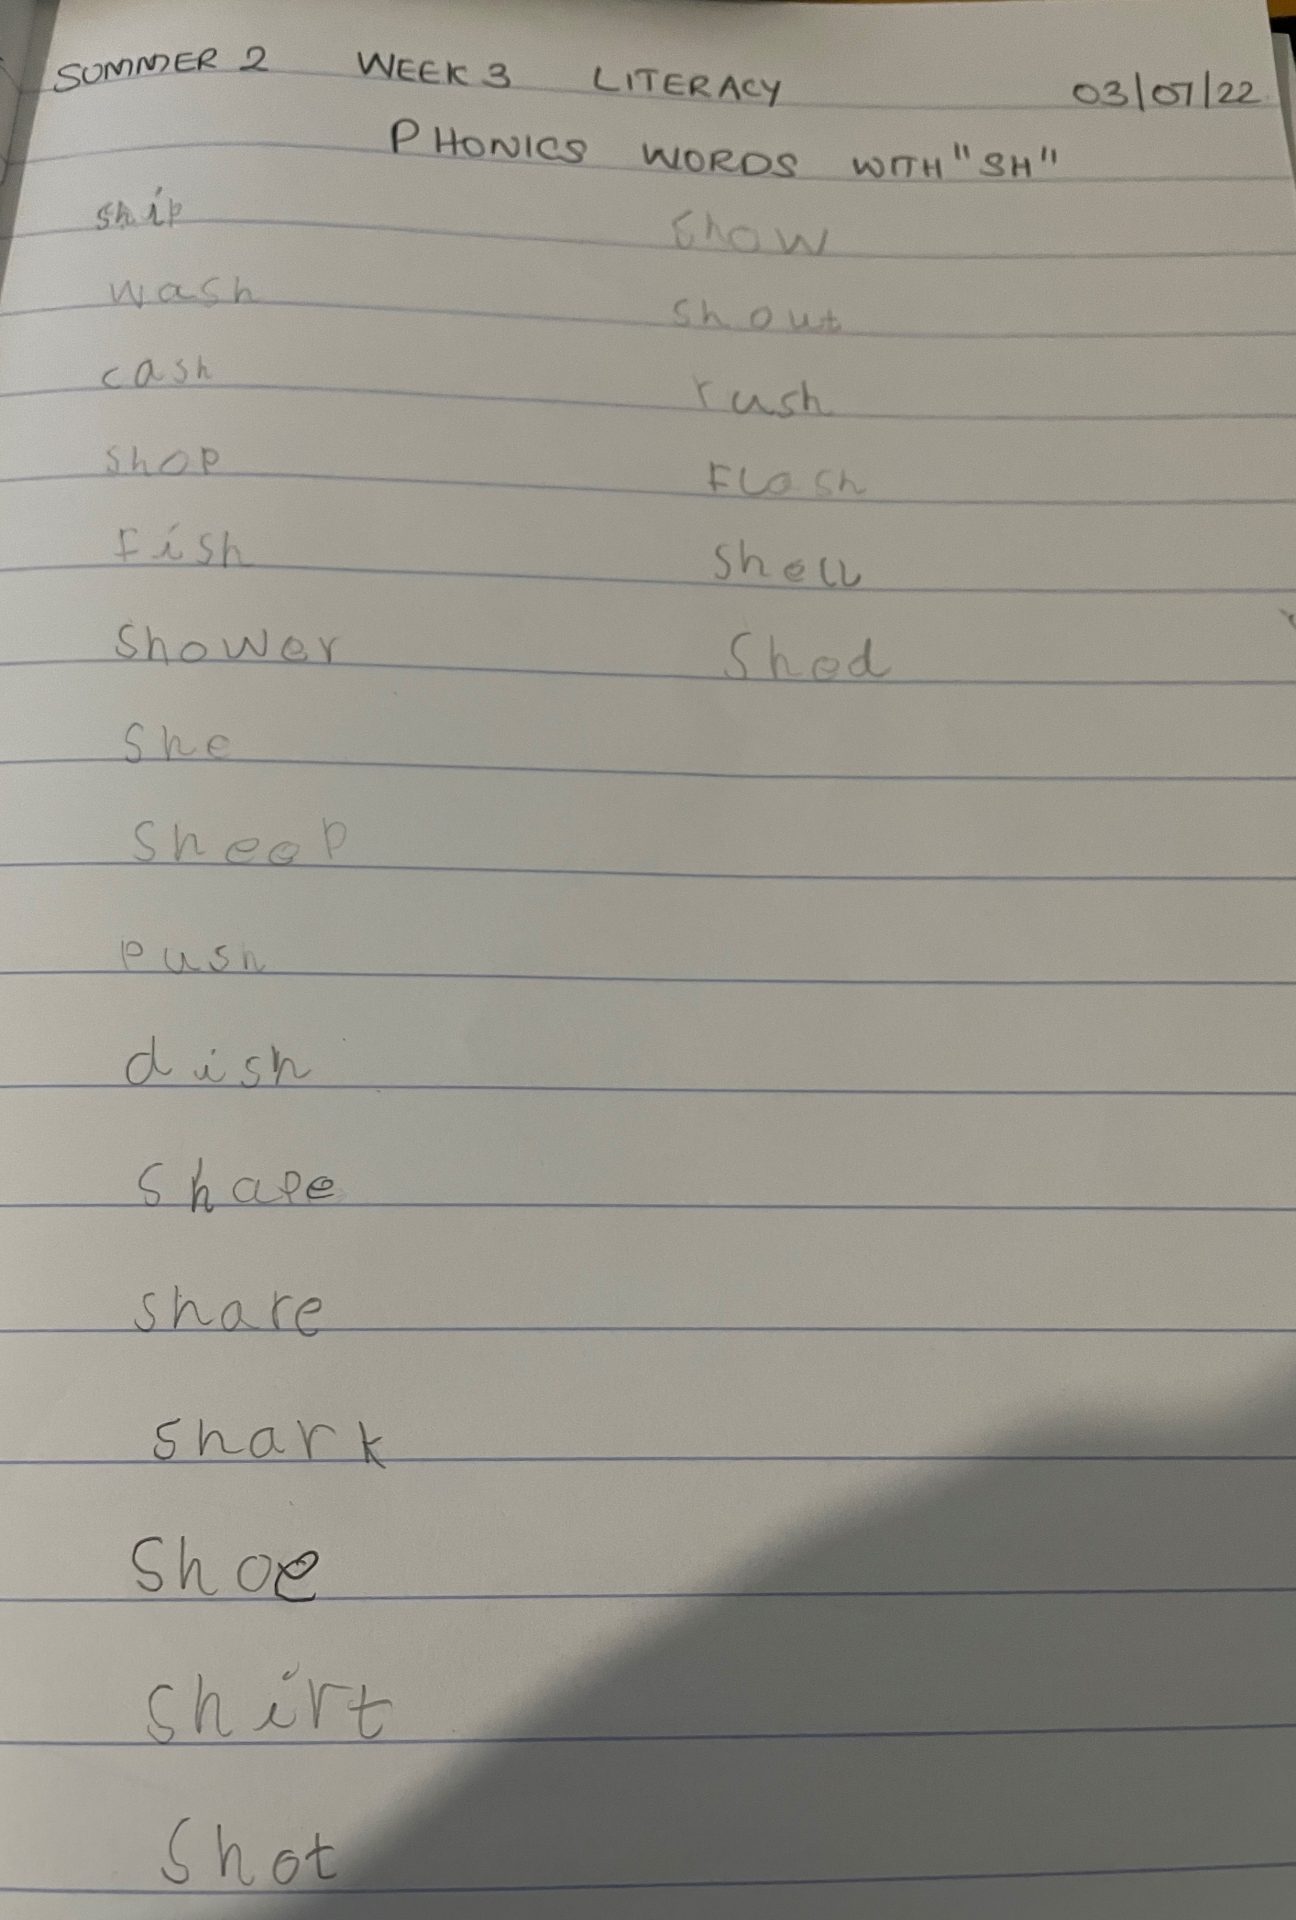 SUMMER 2 WEEK 3 LITERACY 03/07/22
PHONICS WORDS WITH "SH"
ship
wash
cash
shop
Fish
Shower
She
Sheep
push
dish
Shape
share
shark
Shoe
Shirt
Shot
Show
Shout
rush
FLash
Shell
Shed